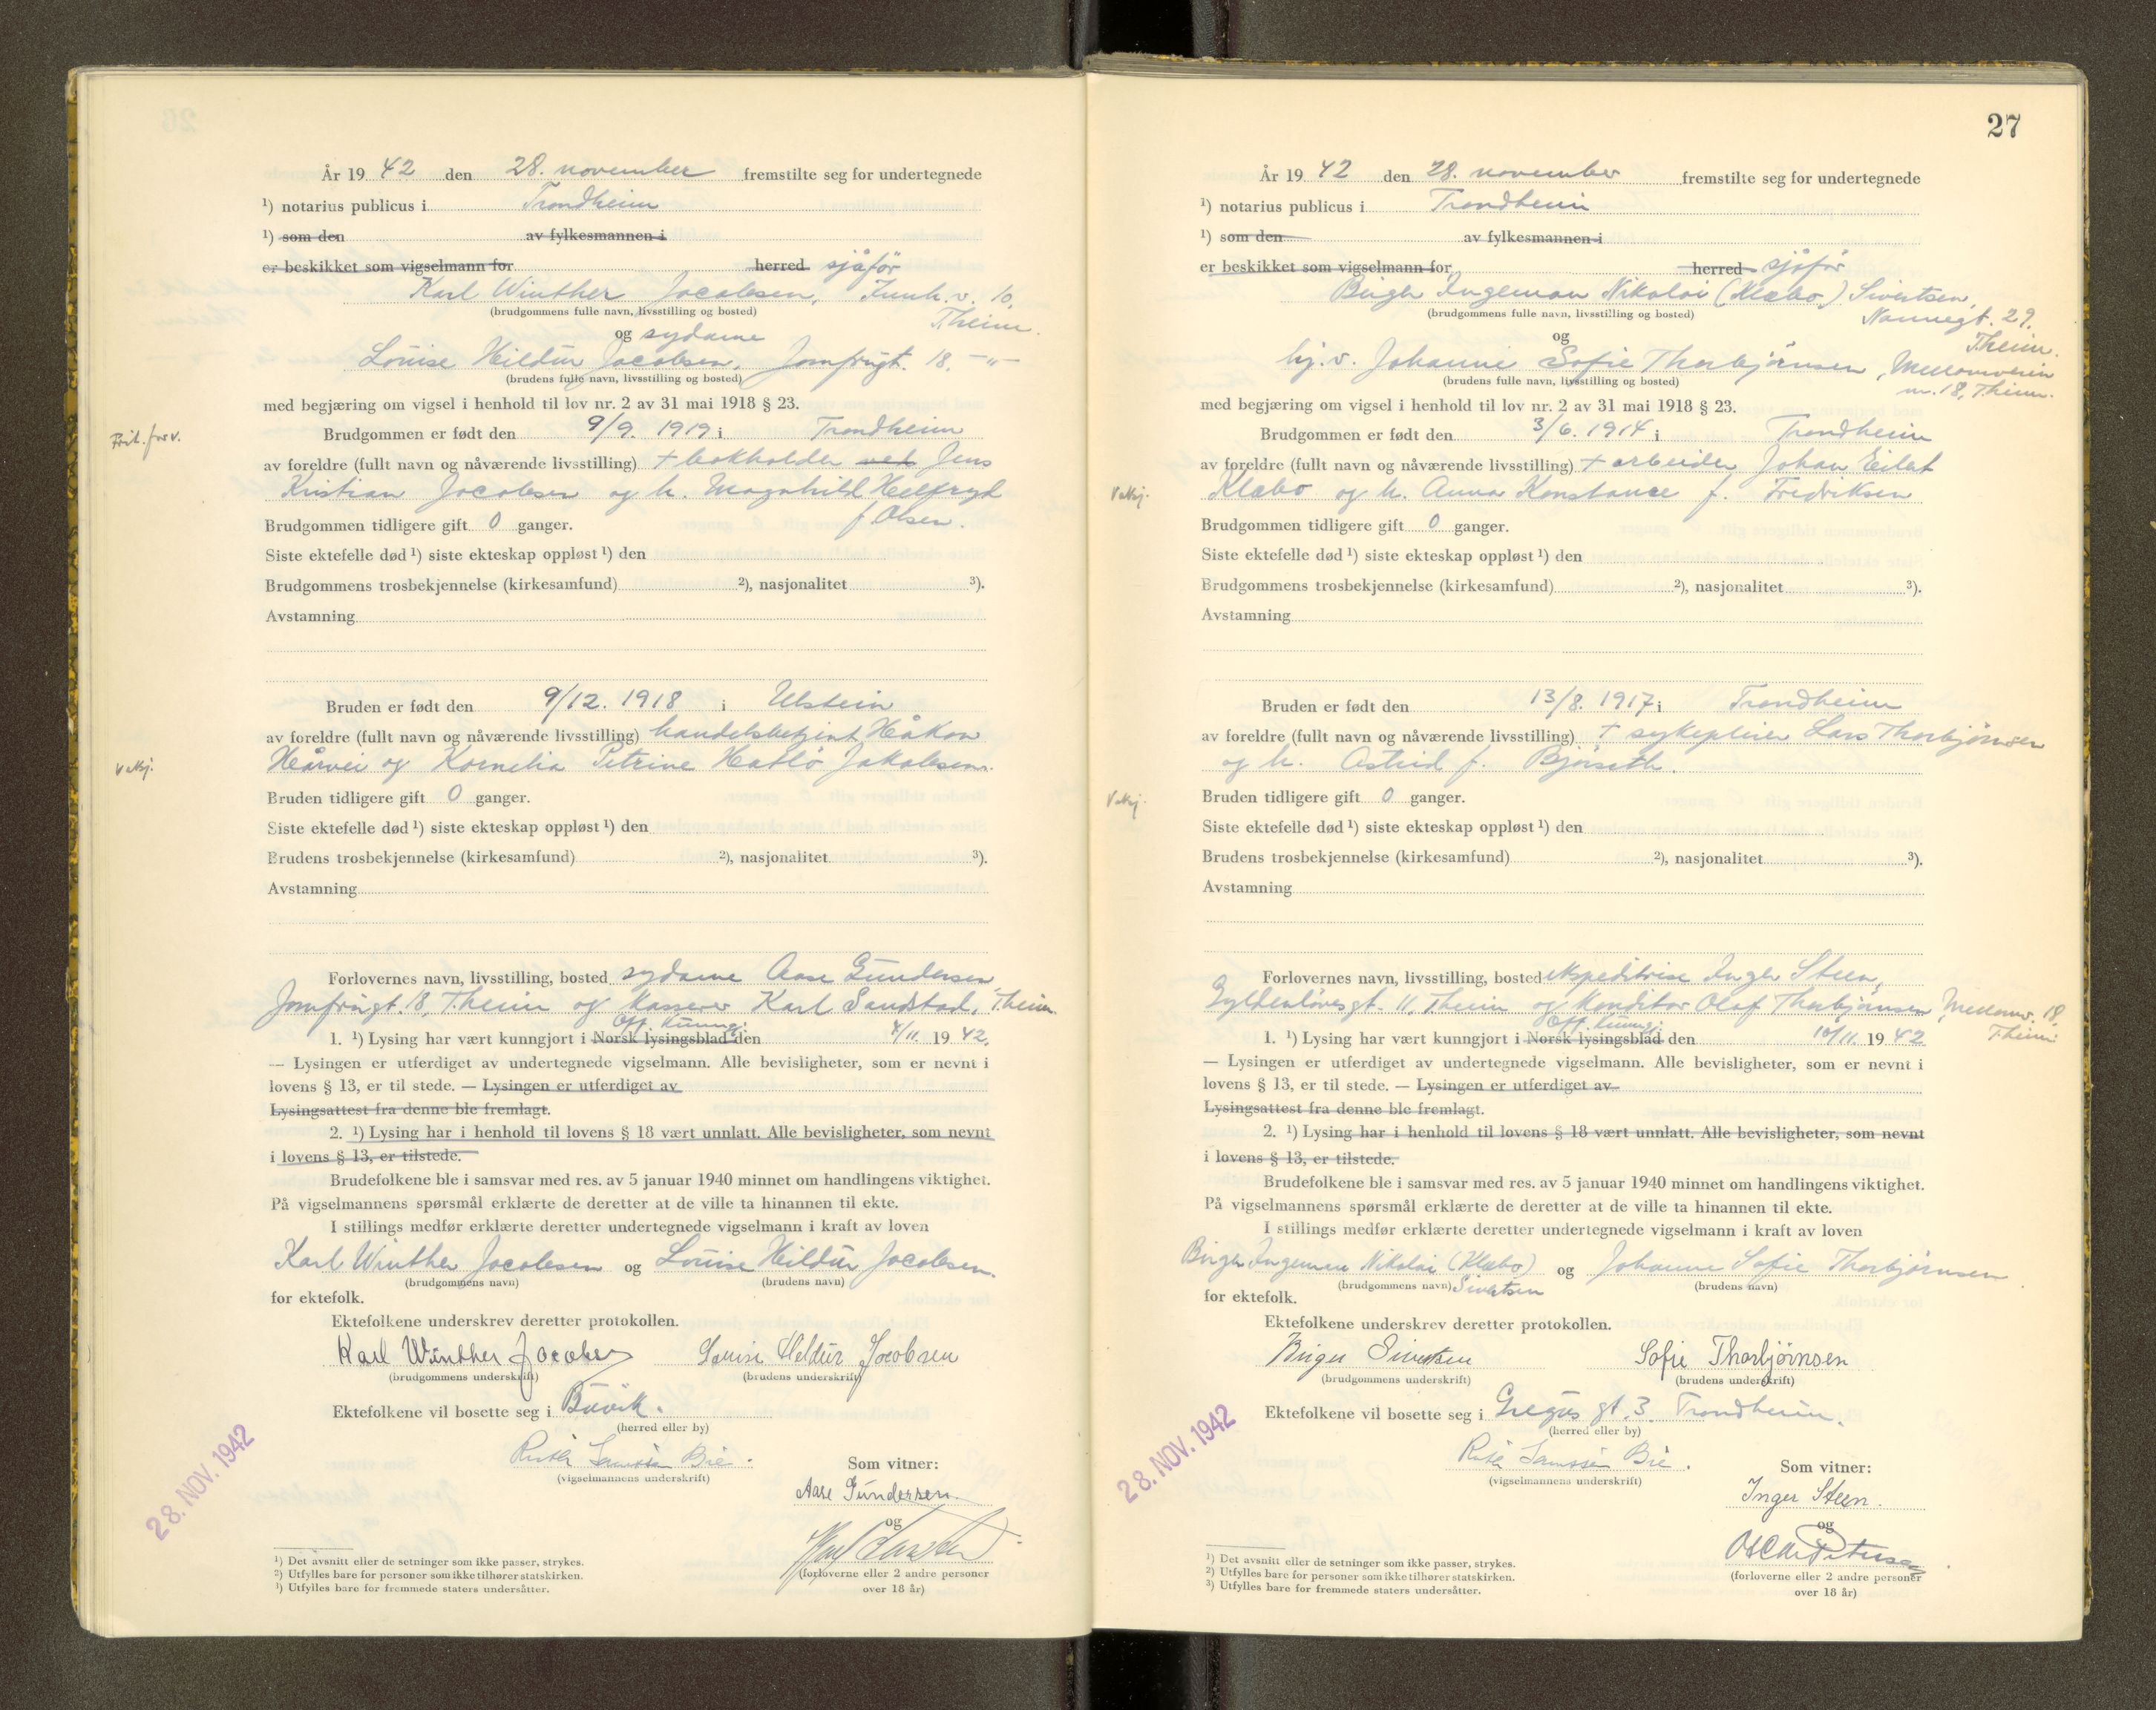 År 19 42 den 28. november fremstilte seg for undertegnede
¹) notarius publicus i Trondheim
¹) som den av fylkesmannen i
er beskikket som vigselmann for herred sjåför
Karl Winther Jacobsen, v. 10,
(brudgommens fulle navn, livsstilling og bosted) T.heim.
og sydame
Louise Hildur Jacobsen, Jomfrugt. 18. —"—
(brudens fulle navn, livsstilling og bosted)
med begjæring om vigsel i henhold til lov nr. 2 av 31 mai 1918 § 23.
Brudgommen er født den 9/9. 1919 i Trondheim
av foreldre (fullt navn og nåværende livsstilling) + bokholder Jens
Kristian Jacobsen og h. Magnhild Helfryd
f. Olsen.
Brudgommen tidligere gift 0 ganger.
Siste ektefelle død ¹) siste ekteskap oppløst ¹) den
Brudgommens trosbekjennelse (kirkesamfund) ²), nasjonalitet ³).
Avstamning
Bruden er født den 9/12. 1918 i Ulstein
av foreldre (fullt navn og nåværende livsstilling) handelsbetjent Håkon
v.akj.
Hårvei og Kornelia Petrine Hatlö Jakobsen.
Bruden tidligere gift 0 ganger.
Siste ektefelle død ¹) siste ekteskap oppløst ¹) den
Brudens trosbekjennelse (kirkesamfund) ²), nasjonalitet ³).
Avstamning
Forlovernes navn, livsstilling, bosted sydame Aase Gundersen,
Jomfrugt. 18, T.heim og kasserer Karl Sandstad, T.heim.
Off. kunngj.
1. ¹) Lysing har vært kunngjort i Norsk lysingsblad den 4/11. 19 42.
— Lysingen er utferdiget av undertegnede vigselmann. Alle bevisligheter, som er nevnt i
lovens § 13, er til stede. — Lysingen er utferdiget av
Lysingsattest fra denne ble fremlagt.
2. ¹) Lysing har i henhold til lovens § 18 vært unnlatt. Alle bevisligheter, som nevnt
i lovens § 13, er tilstede.
Brudefolkene ble i samsvar med res. av 5 januar 1940 minnet om handlingens viktighet.
På vigselmannens spørsmål erklærte de deretter at de ville ta hinannen til ekte.
I stillings medfør erklærte deretter undertegnede vigselmann i kraft av loven
Karl Winther Jacobsen og Louise Hildur Jacobsen.
(brudgommens navn) (brudens navn)
for ektefolk.
Ektefolkene underskrev deretter protokollen.
Karl Winther Jacobsen Louise Hildur Jacobsen
(brudgommens underskrift) (brudens underskrift)
Ektefolkene vil bosette seg i Buvik.
(herred eller by)
28. NOV. 1942
(vigselmannens underskrift)
Som vitner:
Aase Gundersen
og
(forloverne eller 2 andre personer
over 18 år)
¹) Det avsnitt eller de setninger som ikke passer, strykes.
²) Utfylles bare for personer som ikke tilhører statskirken.
¹) Utfylles bare for fremmede staters undersåtter.
27
År 19 42 den 28. november fremstilte seg for undertegnede
¹) notarius publicus i Trondheim
¹) som den av fylkesmannen i
er beskikket som vigselmann for herred sjåför
Birger Ingeman Nikolai (Klæbo) Sivertsen,
(brudgommens fulle navn, livsstilling og bosted) Nonnegt. 29.
og T.heim.
hj.v. Johanne Sofie Thorbjörnsen, Mellomveien
(brudens fulle navn, livsstilling og bosted) nr. 18, T.heim.
med begjæring om vigsel i henhold til lov nr. 2 av 31 mai 1918 § 23.
Brudgommen er født den 3/6. 1914 i Trondheim
av foreldre (fullt navn og nåværende livsstilling) + arbeider Johan Eilert
v.akj.
Klæbo og h. Anna Konstance f. Fredriksen
Brudgommen tidligere gift 0 ganger.
Siste ektefelle død ¹) siste ekteskap oppløst ¹) den
Brudgommens trosbekjennelse (kirkesamfund) ²), nasjonalitet ³).
Avstamning
Bruden er født den 13/8. 1917 i Trondheim
av foreldre (fullt navn og nåværende livsstilling) + sykepleier Lars Thorbjörnsen
og h. Astrid f. Björseth.
v.akj.
Bruden tidligere gift 0 ganger.
Siste ektefelle død ¹) siste ekteskap oppløst ¹) den
Brudens trosbekjennelse (kirkesamfund) ²), nasjonalitet ³).
Avstamning
Forlovernes navn, livsstilling, bosted ekspeditrise Inger Steen,
Gyldenlövesgt. 11, T.heim og konditor Olaf Thorbjörnsen, Mellomv. 18,
T.heim.
Off. kunngj.
1. ¹) Lysing har vært kunngjort i Norsk lysingsblad den 10/11. 19 42
— Lysingen er utferdiget av undertegnede vigselmann. Alle bevisligheter, som er nevnt i
lovens § 13, er til stede. — Lysingen er utferdiget av
Lysingsattest fra denne ble fremlagt.
2. ¹) Lysing har i henhold til lovens § 18 vært unnlatt. Alle bevisligheter, som nevnt
i lovens § 13, er tilstede.
Brudefolkene ble i samsvar med res. av 5 januar 1940 minnet om handlingens viktighet.
På vigselmannens spørsmål erklærte de deretter at de ville ta hinannen til ekte.
I stillings medfør erklærte deretter undertegnede vigselmann i kraft av loven
Birger Ingeman Nikolai (Klæbo) og Johanne Sofie Thorbjörnsen
(brudgommens navn) Sivertsen (brudens navn)
for ektefolk.
Ektefolkene underskrev deretter protokollen.
Birger Sivertsen Sofie Thorbjørnsen
(brudgommens underskrift) (brudens underskrift)
Ektefolkene vil bosette seg i Gregus gt. 3. Trondheim.
(herred eller by)
28. NOV. 1942
(vigselmannens underskrift)
Som vitner:
Inger Steen.
og
(forloverne eller 2 andre personer
over 18 år)
¹) Det avsnitt eller de setninger som ikke passer, strykes.
²) Utfylles bare for personer som ikke tilhører statskirken.
³) Utfylles bare for fremmede staters undersåtter.